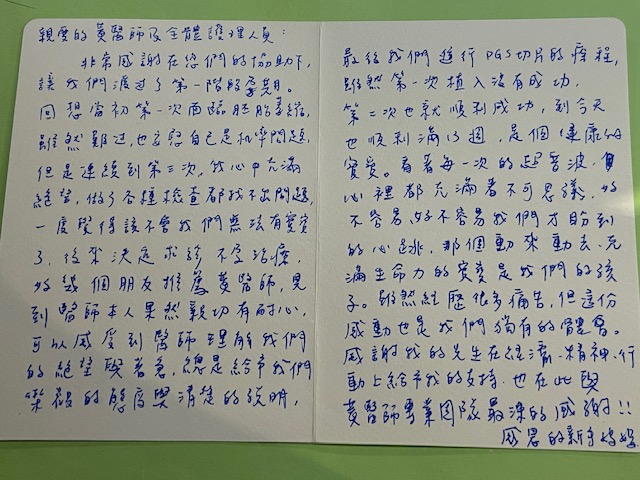 親愛的黃醫師及全體護理人員:
非常感謝在您們的協助下,
讓我們渡過了第一階段孕期。
回想當初第一次面臨胚胎萎縮,
雖然難過,也安慰自己是机率問題,
但是連續到第三次,我心中充滿
絕望,做了各種檢查都找不出問題,
一度覺得該不會我們無法有寶寶
了,後來決定求診不孕治療,
好幾個朋友推薦黃醫師,見
到醫師本人果然親切有耐心,
可以感受到醫師理解我們
的絕望與著急,總是給予我們
樂觀的態度與清楚的說明,
最後我們進行PGS切片的療程,
雖然第一次植入沒有成功,
第二次也就順利成功,到今天
也順利滿13週,是個健康的
寶寶。看著每一次的超音波,
心裡都充滿著不可思議,好
不容易好不容易我們才盼到
的心跳,那個動來動去、充
滿生命力的寶寶是我們的孩
子。雖然經歷很多痛苦,但這份
感動也是我們獨有的體會。
感謝我的先生在經濟、精神、行
動上給予我的支持,也在此與
黃醫師專業團隊最深的感謝!!
感恩的新手媽媽